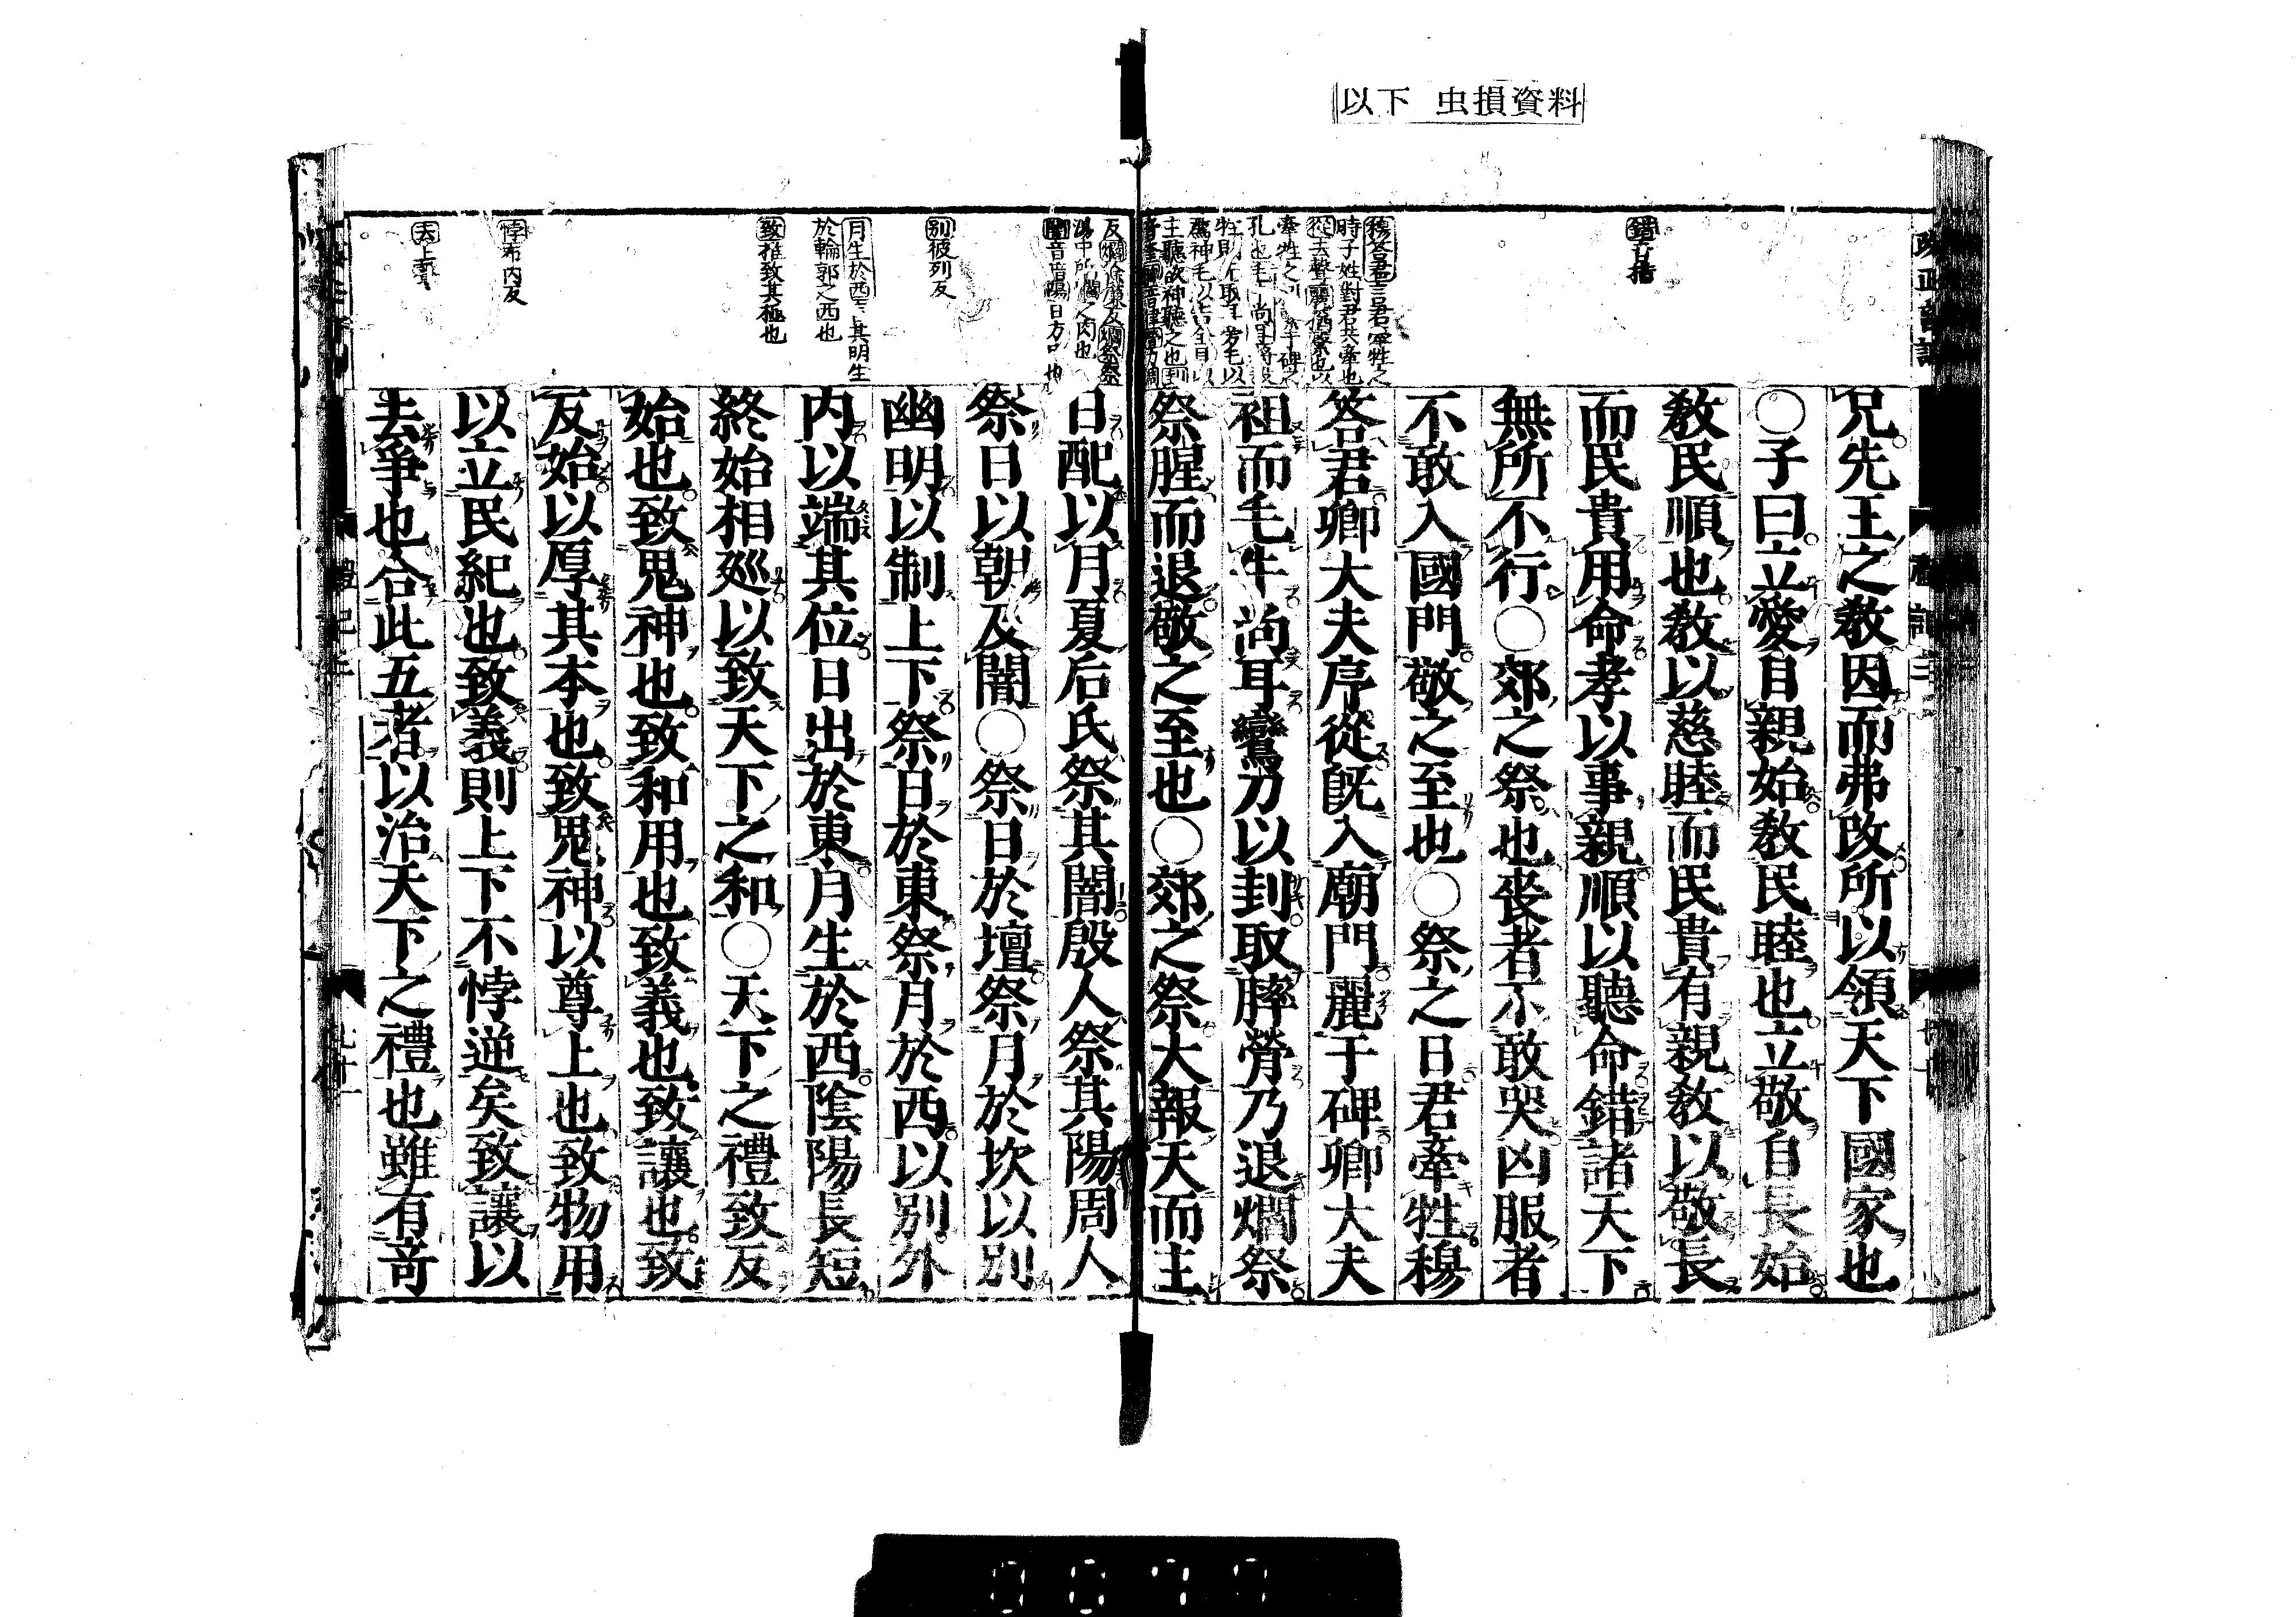 以下 虫損資料
錯音措
兄先王之教因而弗改所以領天下國家也
○子曰立愛自親始教民睦也立敬自長始
教民順也教以慈睦而民貴有親教以敬長
而民貴用命孝以事親順以聽命錯諸天下
無所不行○郊之祭也喪者不敢哭凶服者
不敢入國門敬之至也○祭之日君牽牲穆
答君卿大夫序從既入廟門麗于碑卿大夫
袒而毛牛尚耳鸞刀以刲取膟膋乃退爓祭
祭腥而退敬之至也○郊之祭大報天而主
別彼列反
月生於西言其明生
於輪郭之西也
致推致其極也
悖布内反
去上聲
日配以月夏后氏祭其闇殷人祭其陽周人
祭日以朝及闇○祭日於壇祭月於坎以別
幽明以制上下祭日於東祭月於西以別外
内以端其位日出於東月生於西陰陽長短
終始相廵以致天下之和○天下之禮致反
始也致鬼神也致和用也致義也致讓也致
反始以厚其本也致鬼神以尊上也致物用
以立民紀也致義則上下不悖逆矣致讓以
去爭也合此五者以治天下之禮也雖有竒